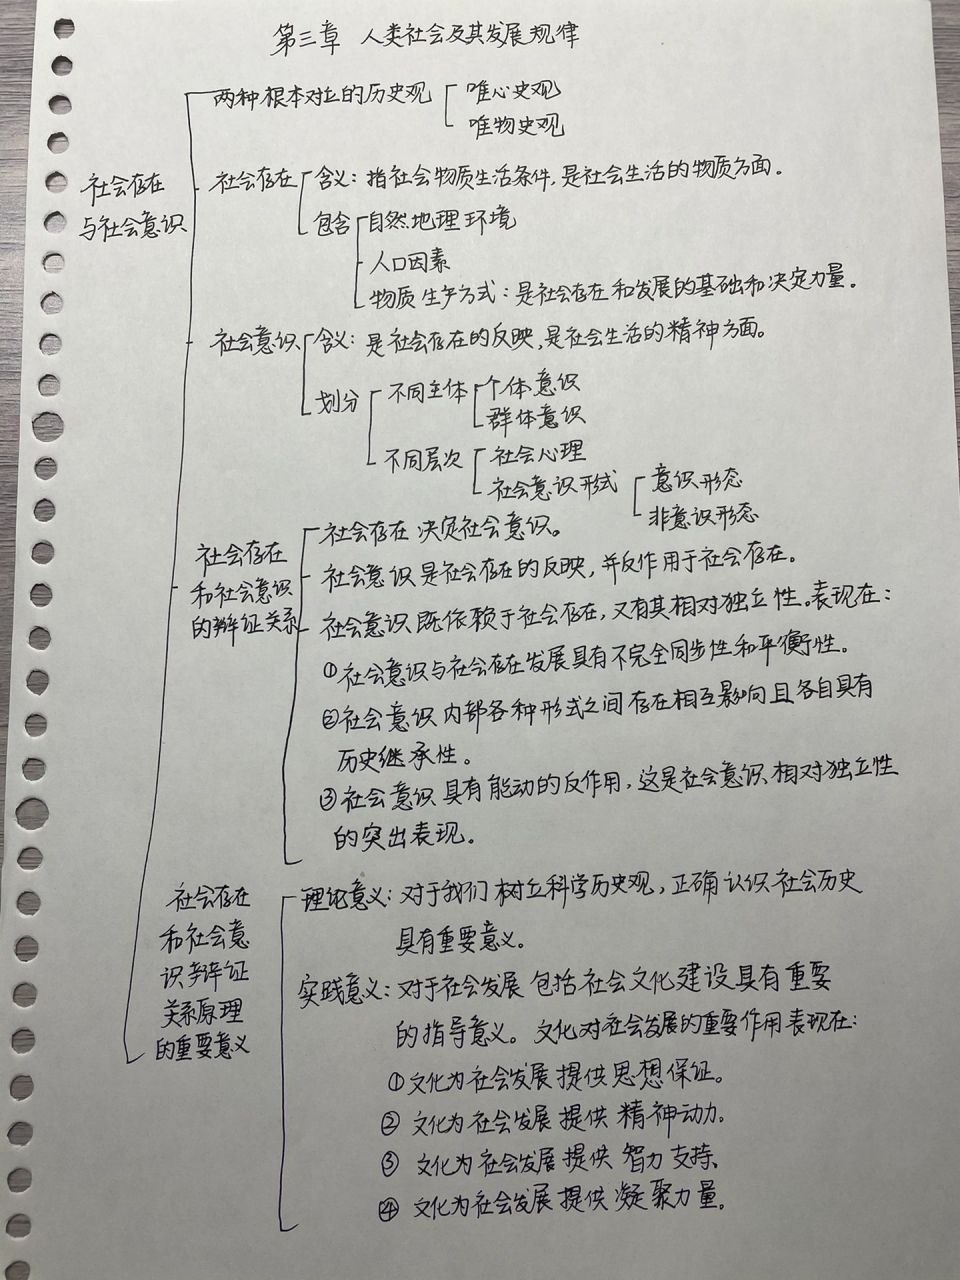 第三章 人类社会及其发展规律
社会存在
与社会意识
两种根本对立的历史观
唯心史观
唯物史观
社会存在
含义：指社会物质生活条件，是社会生活的物质方面。
包含
自然地理环境
人口因素
物质生产方式：是社会存在和发展的基础和决定力量。
社会意识
含义：是社会存在的反映，是社会生活的精神方面。
划分
不同主体
个体意识
群体意识
不同层次
社会心理
社会意识形式
意识形态
非意识形态
社会存在
和社会意识
的辩证关系
社会存在决定社会意识。
社会意识是社会存在的反映，并反作用于社会存在。
社会意识既依赖于社会存在，又有其相对独立性。表现在：
①社会意识与社会存在发展具有不完全同步性和平衡性。
②社会意识内部各种形式之间存在相互影响且各自具有
历史继承性。
③社会意识具有能动的反作用，这是社会意识相对独立性
的突出表现。
社会存在
和社会意
识辩证
关系原理
的重要意义
理论意义：对于我们树立科学历史观，正确认识社会历史
具有重要意义。
实践意义：对于社会发展包括社会文化建设具有重要
的指导意义。文化对社会发展的重要作用表现在：
①文化为社会发展提供思想保证。
②文化为社会发展提供精神动力。
③文化为社会发展提供智力支持、
④文化为社会发展提供凝聚力量。